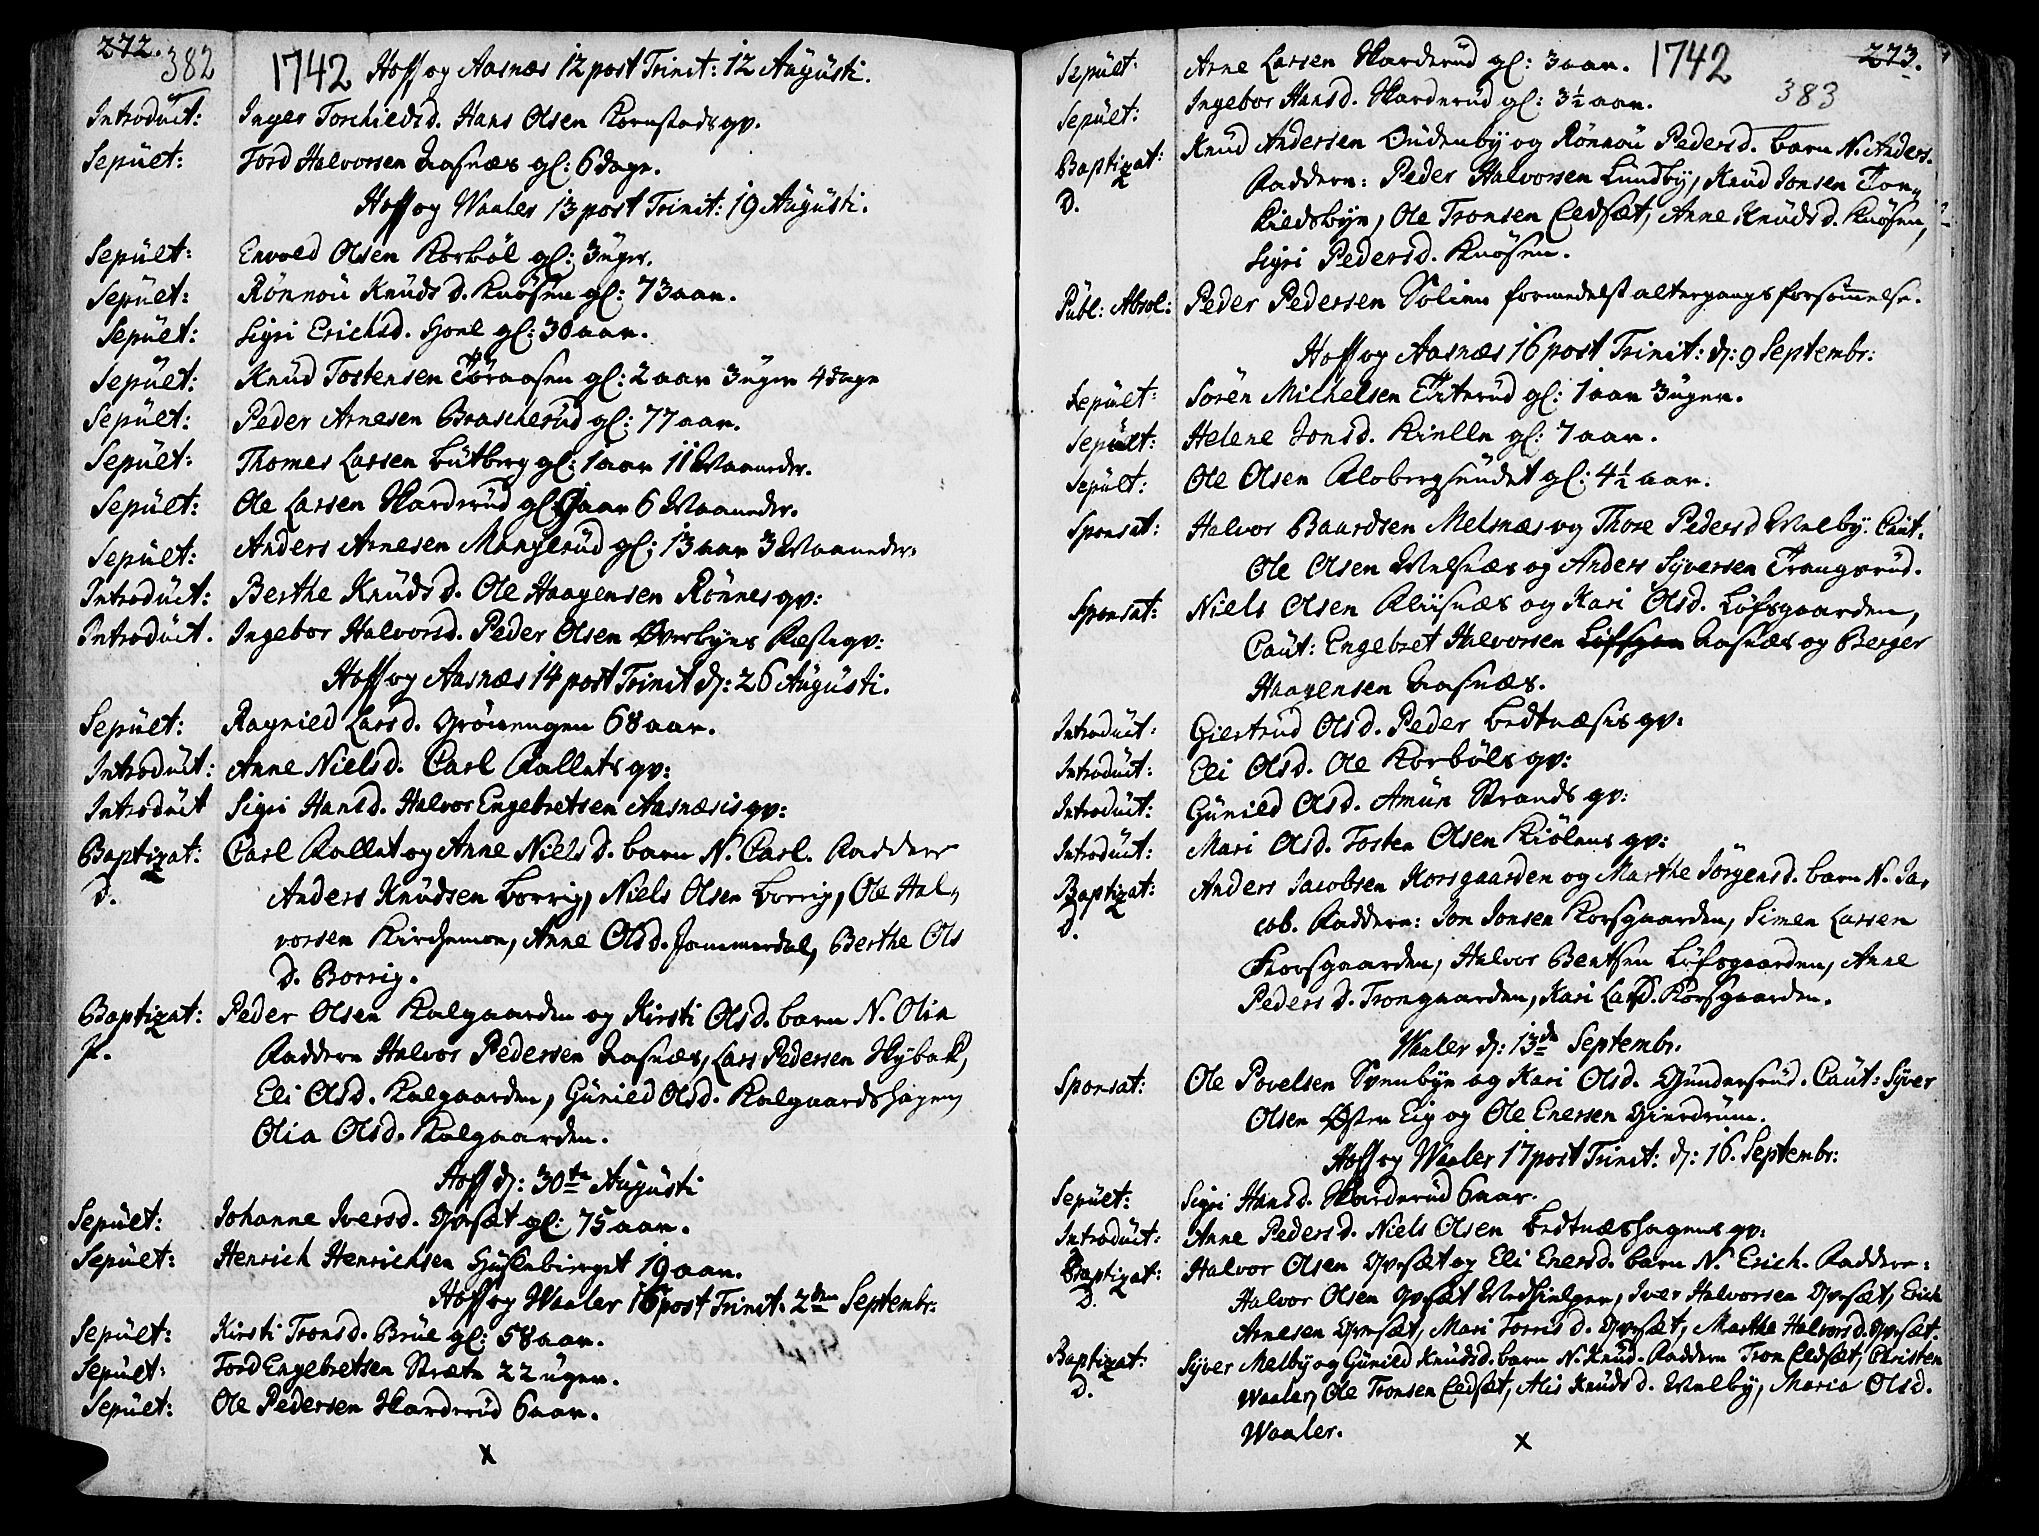 272.
382
1742 Hoff og Aasnæs 12 post Trinit: 12 Augüsti.
Introdüct: Inger Torchieldsd. Hans Olsen Kornstads qv.
Sepült: Tord Halvorsen Aasnæs gl: 6 dage.
Hoff og Waaler 13 post Trinit: 19 Augüsti.
Sepült: Envold Olsen Korböl gl: 3 üger.
Sepült: Rönnoü Knüdsd. Knösen gl: 73 aar.
Sepült: Sigri Erichsd. Hoel gl: 30 aar.
Sepült: Knüd Tostensen Töraasen gl: 2 aar 3 üger 4 dage
Sepült: Peder Arnesen Brascherüd gl: 77 aar.
Sepült: Thomes Larsen Bütberg gl: 1 aar 11 Maaneder.
Sepült: Ole Larsen Skarderüd gl: aar 6 Maaneder.
Sepült: Anders Arnesen Mangerüd gl: 13 aar 3 Maaneder.
Introdüct: Berthe Knüdsd. Ole Haagensen Rönnes qv:
Introdüct. Ingebor Halvorsd. Peder Olsen Overbyes Næste qv:
Hoff og Aasnæs 14 post Trinit d: 26 Augüsti.
Sepült: Ragnild Larsd. Gröneengen 68 aar.
Introdüct: Anne Nielsd. Carl Kallets qv:
Introdüct Sigri Hansd. Halvor Engebretsen Aasnæsis qv:
Baptizat: Carl Kallet og Anne Nielsd. barn N. Carl. Faddere
D. Anders Knüdsen Borrig, Niels Olsen Borrig, Ole Hal-
vorsen Kirchemoe, Anne Olsd. Jammerdal, Berthe Ols
d. Borrig.
Baptizat: Peder Olsen Kalgaarden og Kirsti Olsd. barn N. Olia
Faddere Halvor Pedersen Aasnæs, Lars Pedersen Nybak,
Eli Olsd. Kalgaarden, Günild Olsd. Kalgaardshagen
Olia Olsd. Kalgaarden.
Hoff d: 30te Augüsti
Sepült: Johanne Iversd. Opsæt gl: 75 aar.
Sepült: Henrich Henrichsen Hüslebierget 19 aar.
Hoff og Waaler 15 post Trinit: 2den Septembr:
Sepült: Kirsti Tronsd. Brüe gl: 58 aar.
Sepült: Tord Engebretsen Stræte 22 üger.
Sepült: Ole Pedersen Skarderüd 6 aar.
x
273.
1742
383
Sepült: Arne Larsen Skarderüd gl: 3 aar.
Sepült: Ingebor Hansd. Skarderüd gl: 3½ aar.
Baptizat: Knüd Andersen Sudenby og Rönnoü Pedersd. barn N. Anders.
D. Faddere: Peder Halvorsen Lundby, Knüd Jonsen Tor-
kieldsbye, Ole Tronsen Eedsæt, Anne Knüdsd. Knösen,
Sigri Pedersd. Knösen.
Publ: Absol: Peder Pedersen Solien formedelst altergangs forsømmelse.
Hoff og Aasnæs 16 post Trinit: d: 9 Septembr:
Sepült: Sören Michelsen Titerüd gl: 1 aar 3 üger.
Sepült: Helene Jonsd. Kielle gl: 7 aar.
Sepült: Ole Olsen Klobergsündet gl: 4½ aar.
Sponsat: Halvor Baardsen Melsnæs og Thore Pedersd Melby. Caut.
Ole Olsen Melsnæs og Anders Syversen Trangsrüd.
Sponsat: Niels Olsen Kliisnæs og Kari Olsd. Löfsgaarden,
Caut: Engebret Halvorsen Löfsgen Aasnæs og Berger
Haagensen Aasnæs.
Introdüct: Giertrüd Olsd. Peder Bedtnæsis qv:
Introdüct: Eli Olsd. Ole Korböls qv:
Introdüct: Günild Olsd. Amün Strands qv:
Introdüct: Mari Olsd. Tosten Olsen Kiölens qv:
Baptizat: Anders Jacobsen Korsgaarden og Marthe Jörgensd. barn N. Ja-
D. cob. Faddere: Jon Jonsen Korsgaarden, Simen Larsen
Korsgaarden, Halvor Bentsen Löfsgaarden, Anne
Pedersd. Trongaarden, Kari Larsd. Korsgaarden.
Waaler d: 13de Septembr.
Sponsat: Ole Povelsen Svenbye og Kari Olsd. Gündersrüd. Caut: Syver
Olsen Østen Eig og Ole Enersen Gierdrüm.
Hoff og Waaler 17 post Trinit: d: 16. Septembr:
Sepült: Sigri Hansd. Skarderüd 6 aar.
Introdüct: Anne Pedersd. Niels Olsen Bedtnæshagens qv:
Baptizat: Halvor Olsen Opsæt og Eli Enersd. barn N. Erich. Faddere:
D. Halvor Olsen Opsæt, Iver Halvorsen Opsæt, Erich
Arnesen Opsæt, Mari Torrisd. Opsæt, Marthe Halvorsd. Opsæt.
Baptizat: Syver Melby og Günild Knüdsd. barn N. Knüd. Faddere Tron Eedsæt, Christen
D. Waaler, Ole Tronsen Eedsæt, Alis Knüdsd. Melby, Maria Olsd.
Waaler.
x